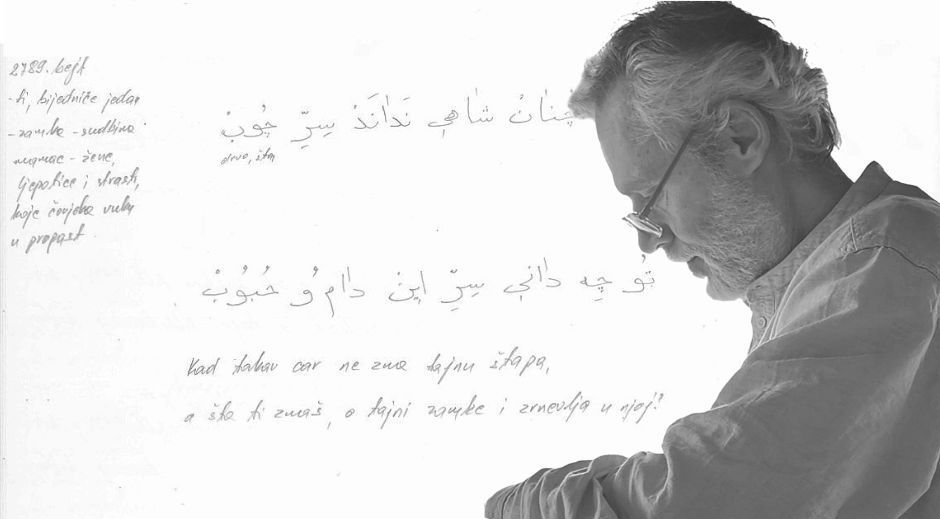 2789. bejt
- ti, bijedniče jedan
- zamka - sudbina
mamac - žene,
ljepotice i strasti,
koje čovjeka vuku
u propast
چُنٰانْ شٰاهِي نَدٰانَدْ سِرِّ چُوبْ
drvo, štap
تُو چِه دٰانِي سِرِّ اينْ دٰام وُ حُبُوبْ
Kad takav car ne zna tajnu štapa,
a šta ti znaš, o tajni zamke i zrnevlja u njoj?